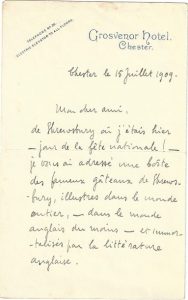 TELEPHONE Nº 20.
ELECTRIC ELEVATOR TO ALL FLOORS.
Grosvenor Hotel.
Chester.
Chester le 15 Juillet 1909.
Mon cher ami,
de Shrewsbury où j'étais hier
– jour de la fête nationale ! –
je vous ai adressé une boîte
des fameux gâteaux de Shrews-
bury, illustres dans le monde
entier, – dans le monde
anglais du moins – et immor-
talisés par la littérature
anglaise.